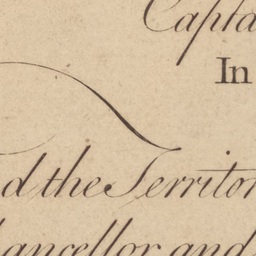 Capta
In
d the Territor
hancellor and